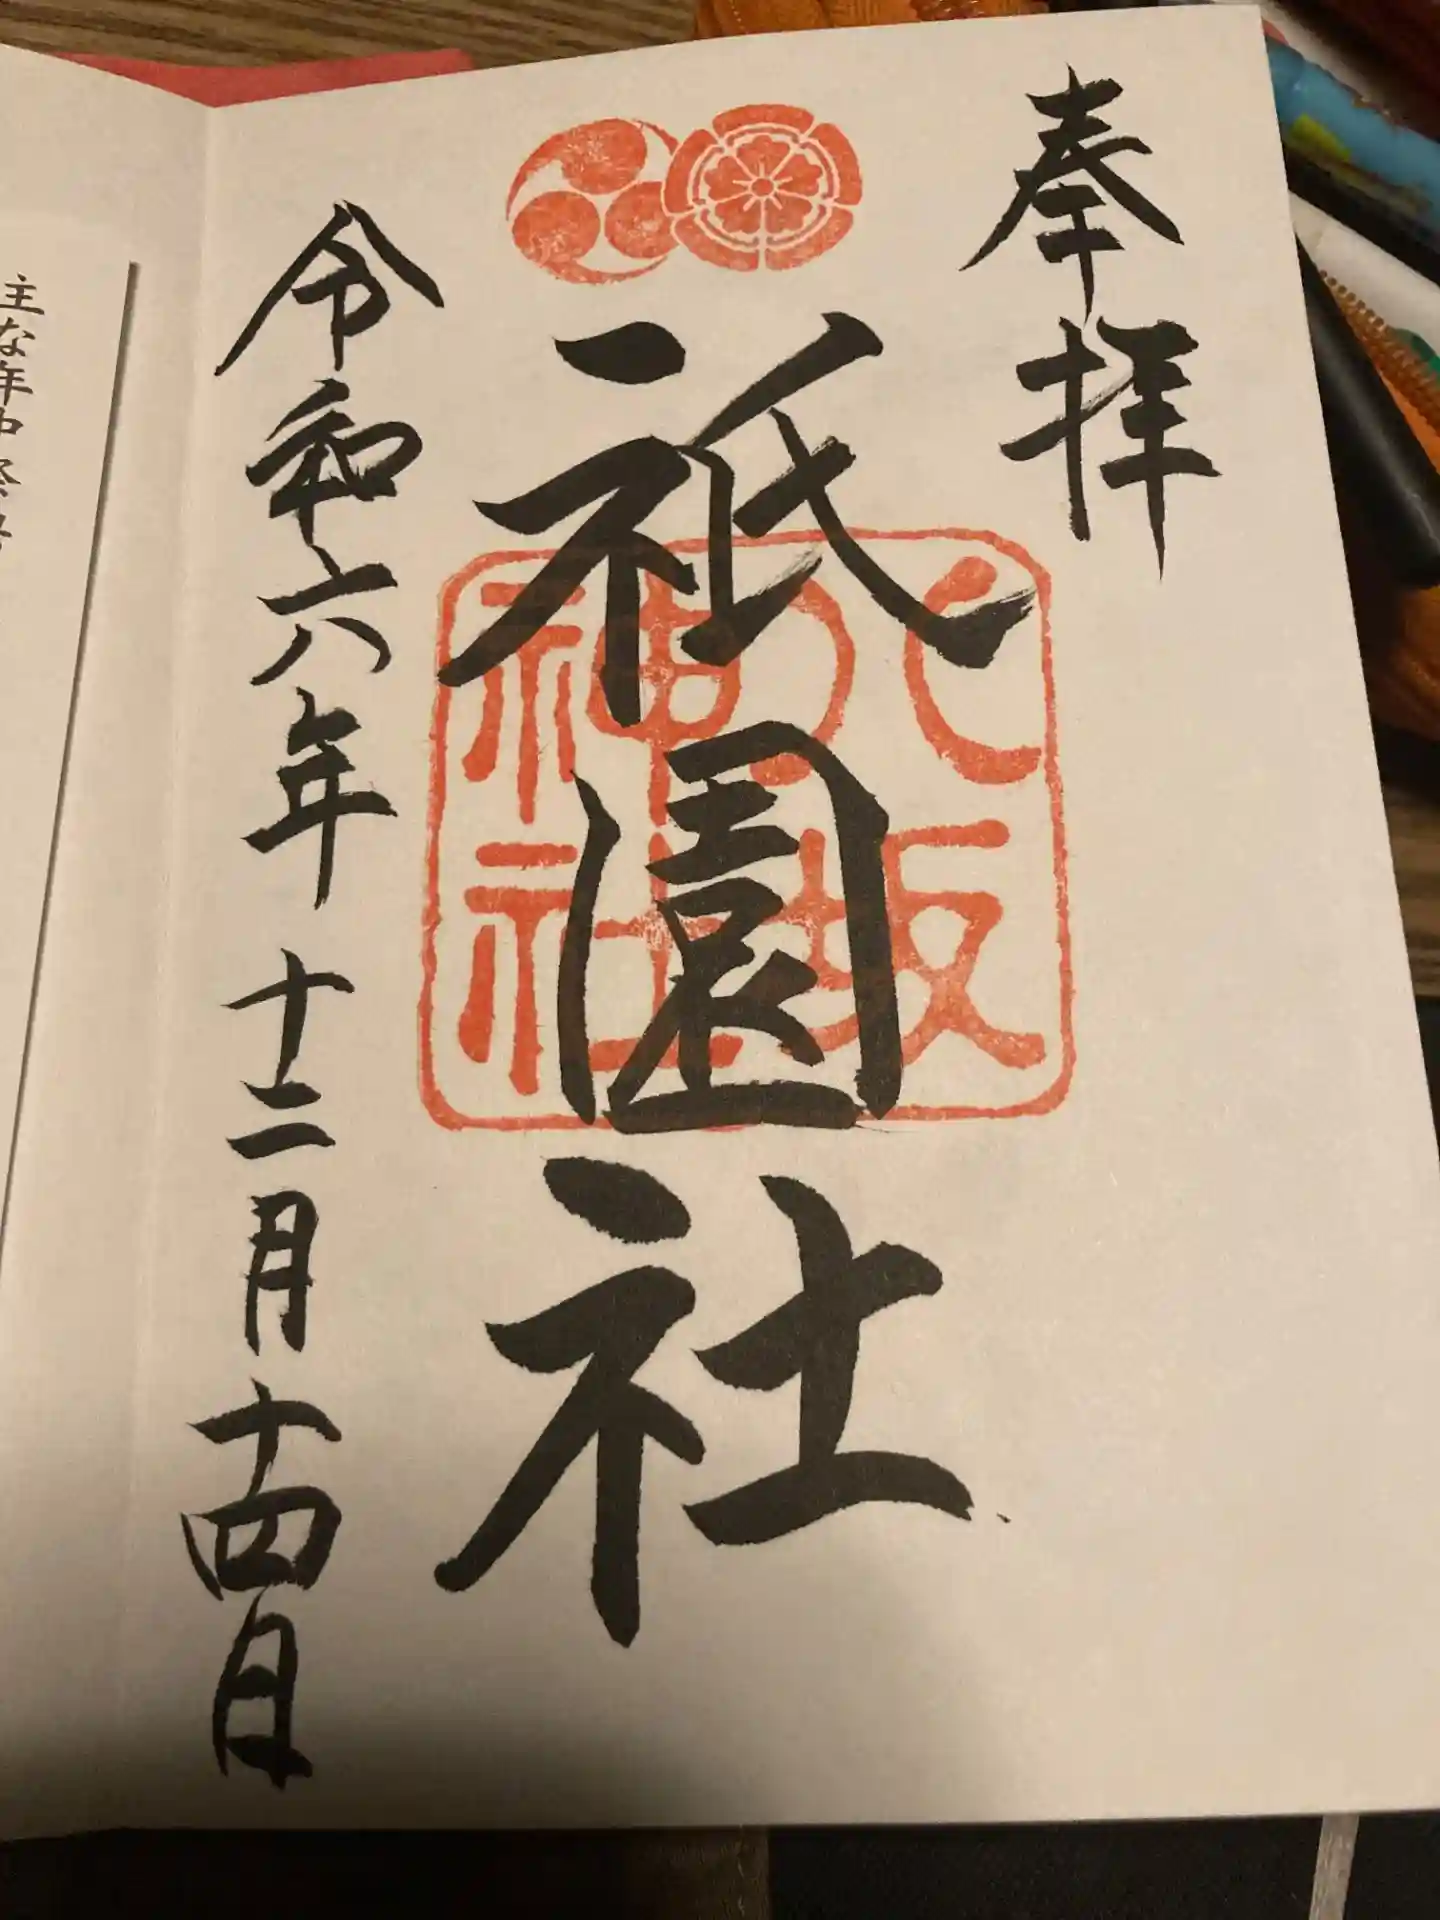 奉拝
祇園社
八坂
神社
令和六年十二月十四日
主な年中祭